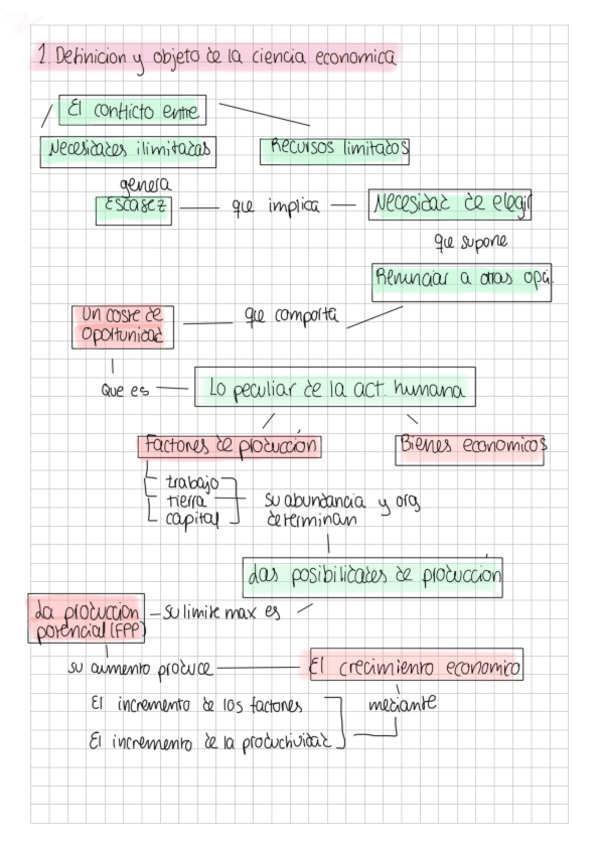 1. Definicion y objeto de la ciencia economica
El conflicto entre
Necesidades ilimitadas
Recursos limitados
genera
Escasez
que implica
Necesidad de elegir
que supone
Renunciar a otras opci.
Un coste de
oportunidad
que comporta
Que es
Lo peculiar de la act. humana
Factores de producción
Bienes economicos
trabajo
tierra
capital
su abundancia y org
determinan
Las posibilidades de producción
La produccion
potencial (FPP)
su limite max es
su aumento produce
El crecimiento economico
El incremento de los factores
mediante
El incremento de la productividad